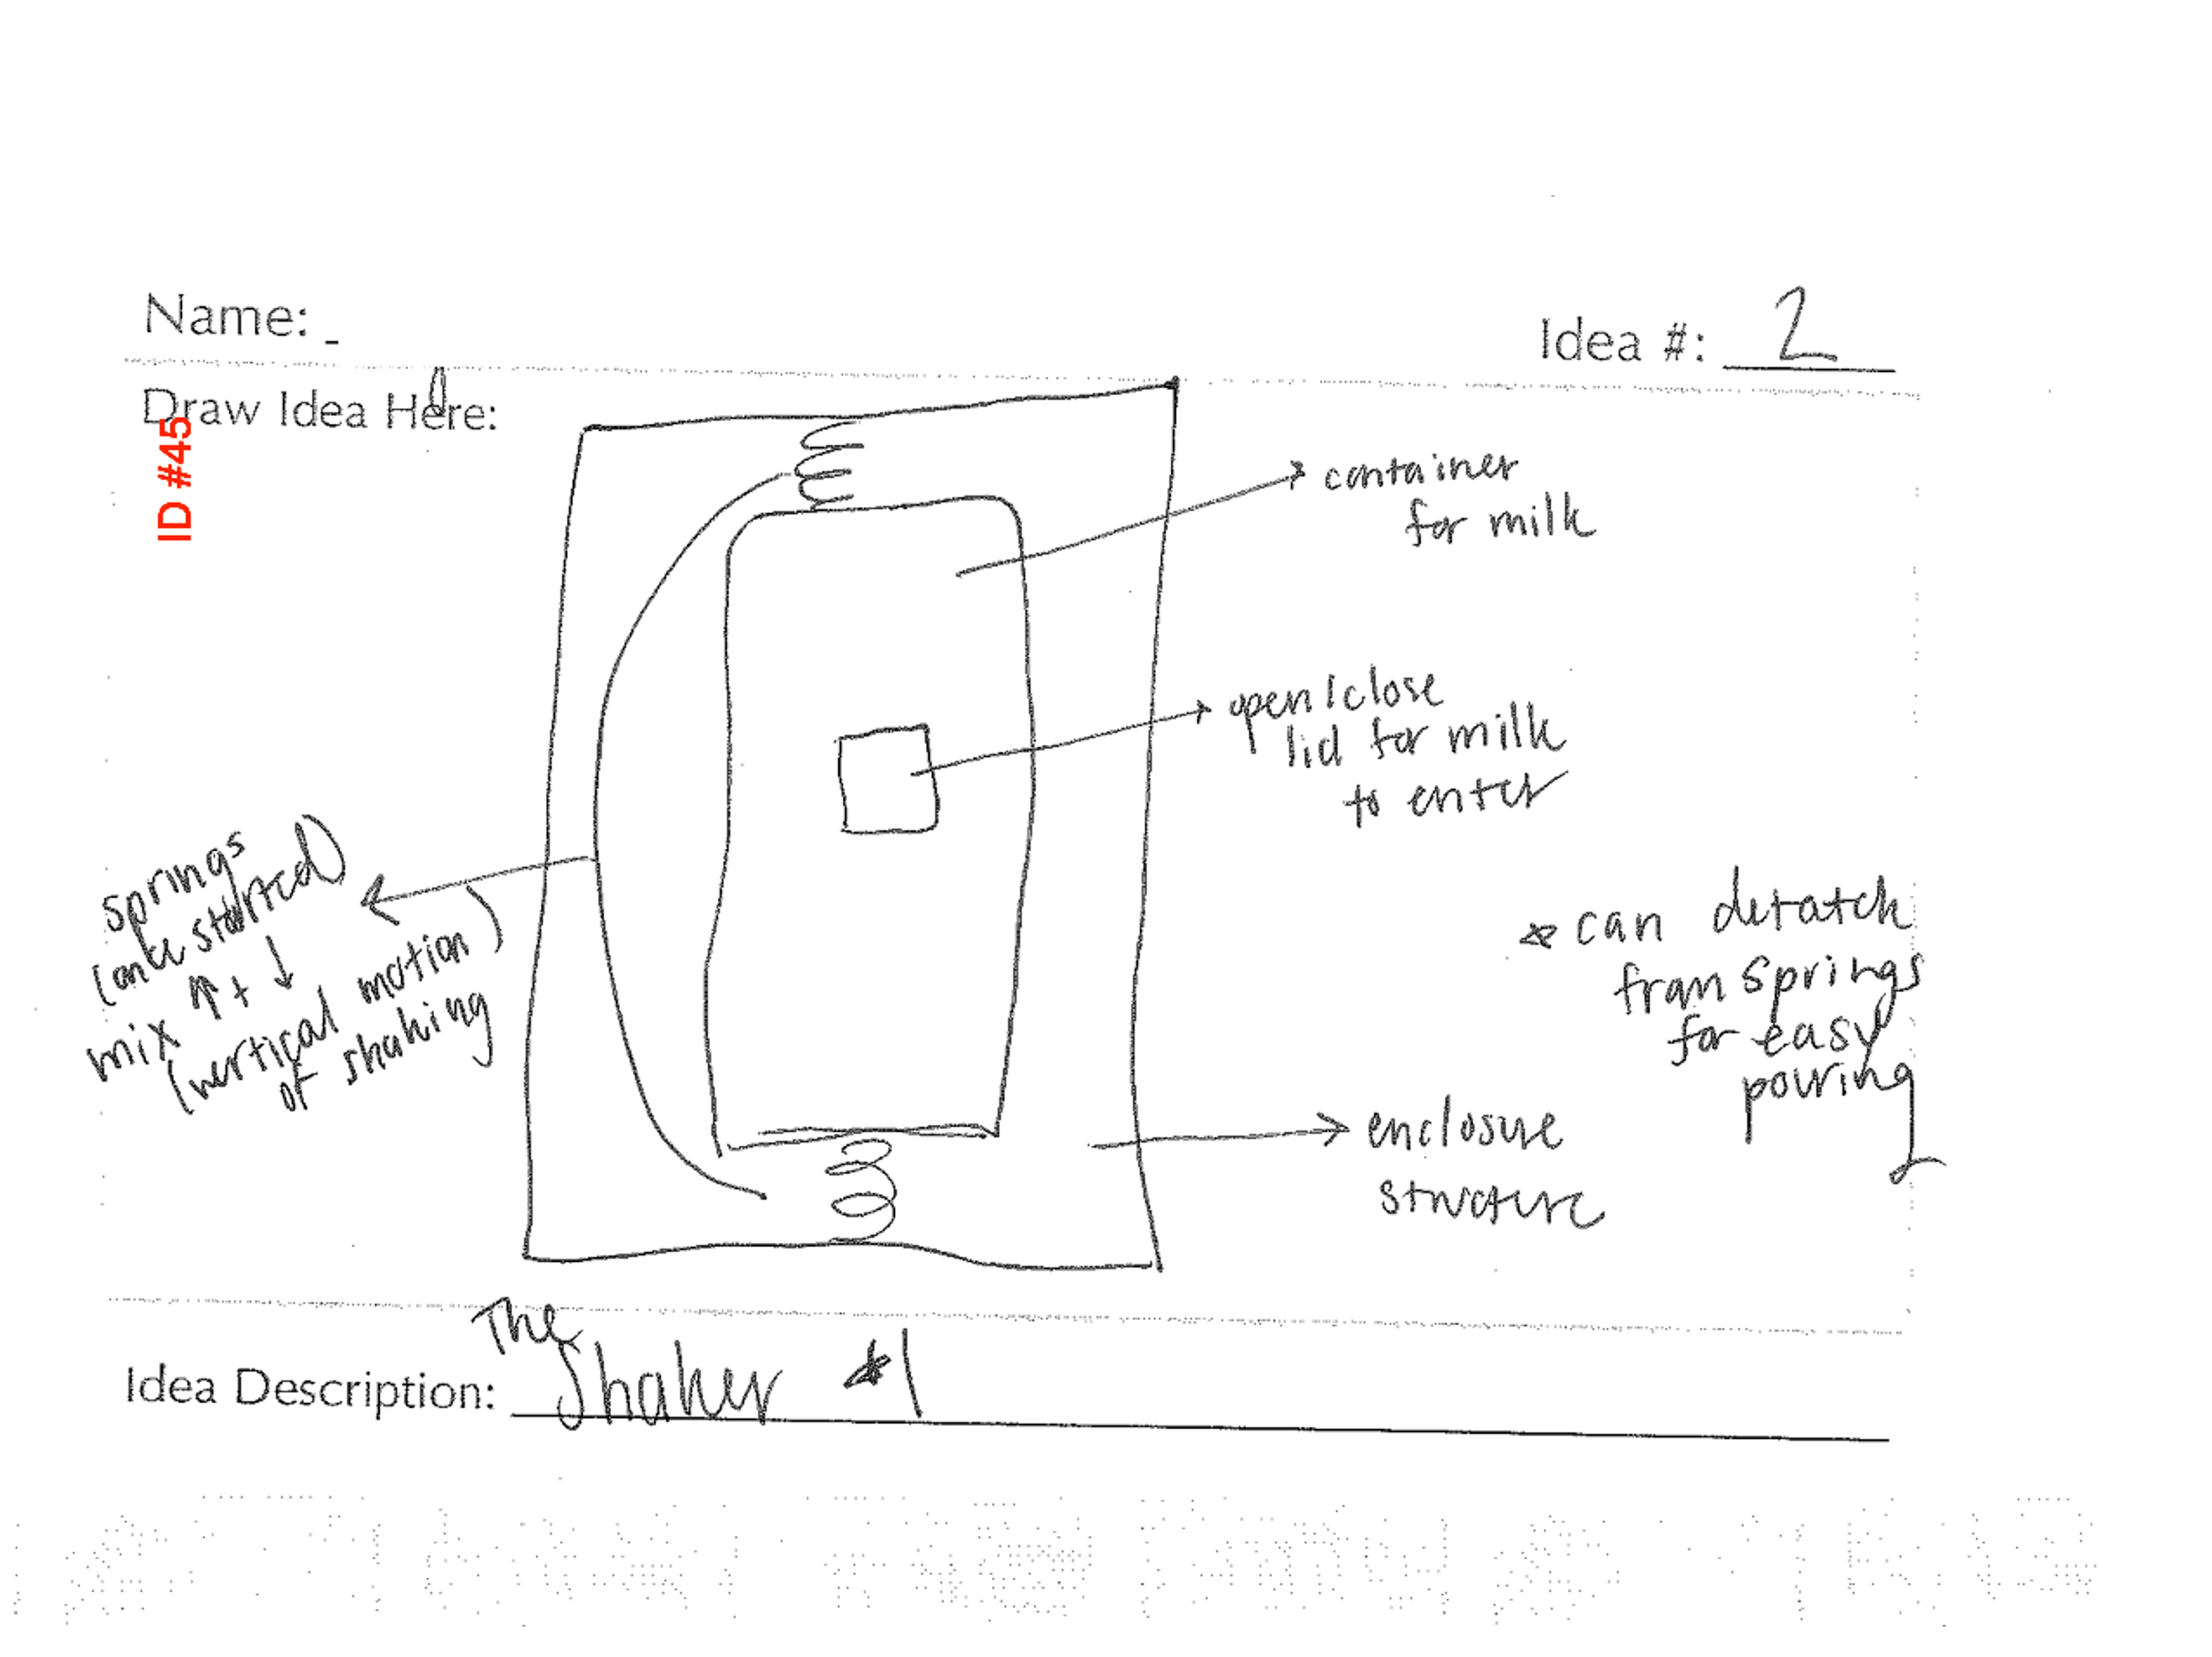 Name:
Idea #: 2
Draw Idea Here:
ID #45
container
for milk
open/close
lid for milk
to enter
springs
(once started)
mix ↑ + ↓
(vertical motion)
of shaking
* can detatch
from springs
for easy
pouring
enclosure
structure
Idea Description: The Shaker #1